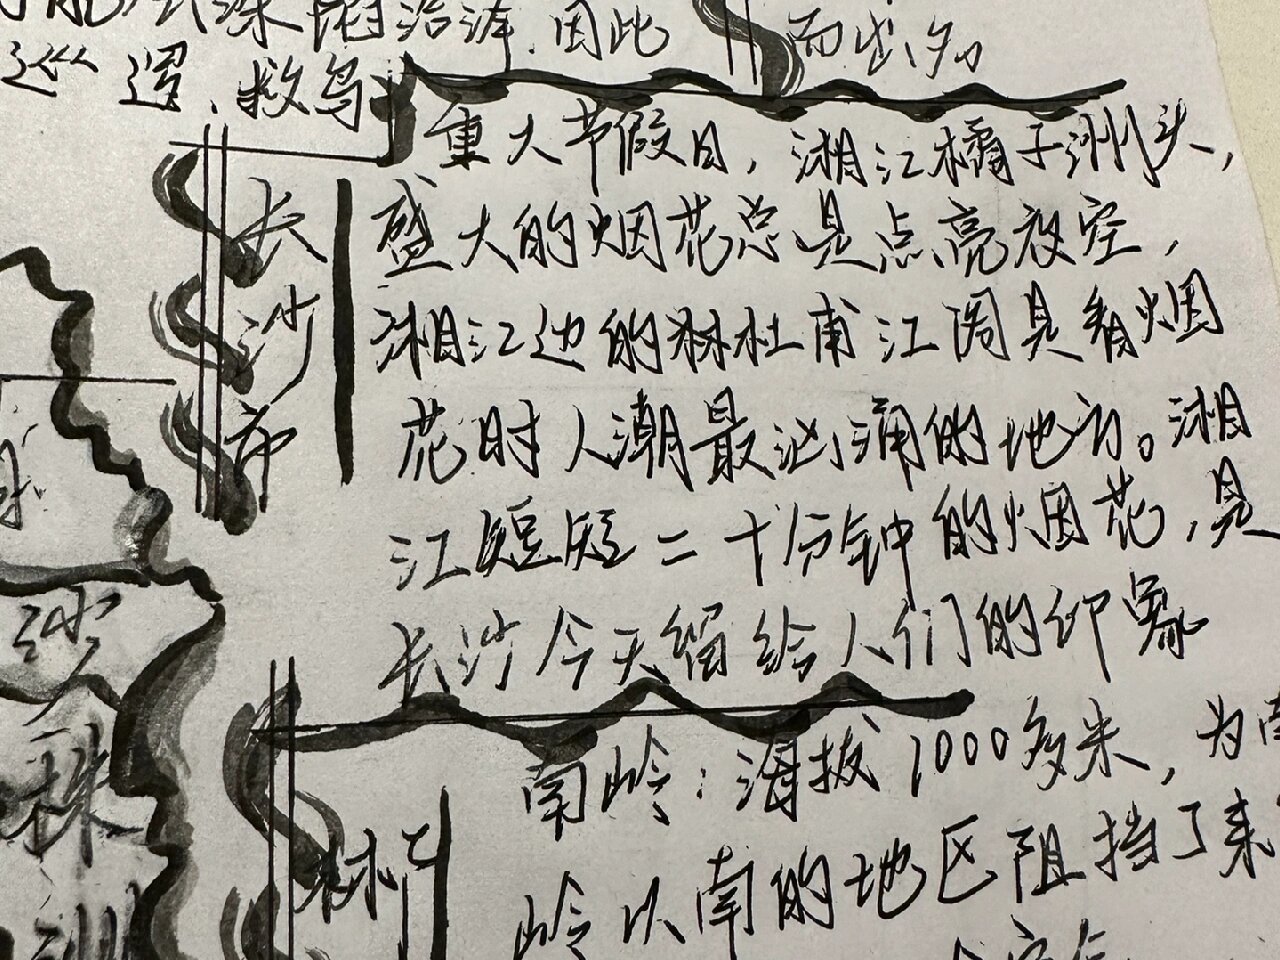 因此
而出名
巡逻,救鸟
长沙市
重大节假日,湘江橘子洲头,
盛大的烟花总是点亮夜空,
湘江边的杜甫江阁是看烟
花时人潮最汹涌的地方。湘
江短短二十分钟的烟花,是
长沙今天留给人们的印象
南岭:海拔1000多米,为南
岭以南的地区阻挡了来
沙
株
洲